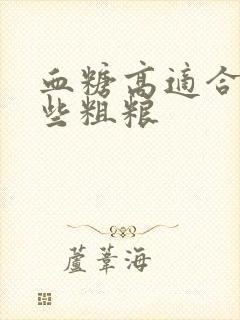 血糖高適合
些粗粮
蘆葦海